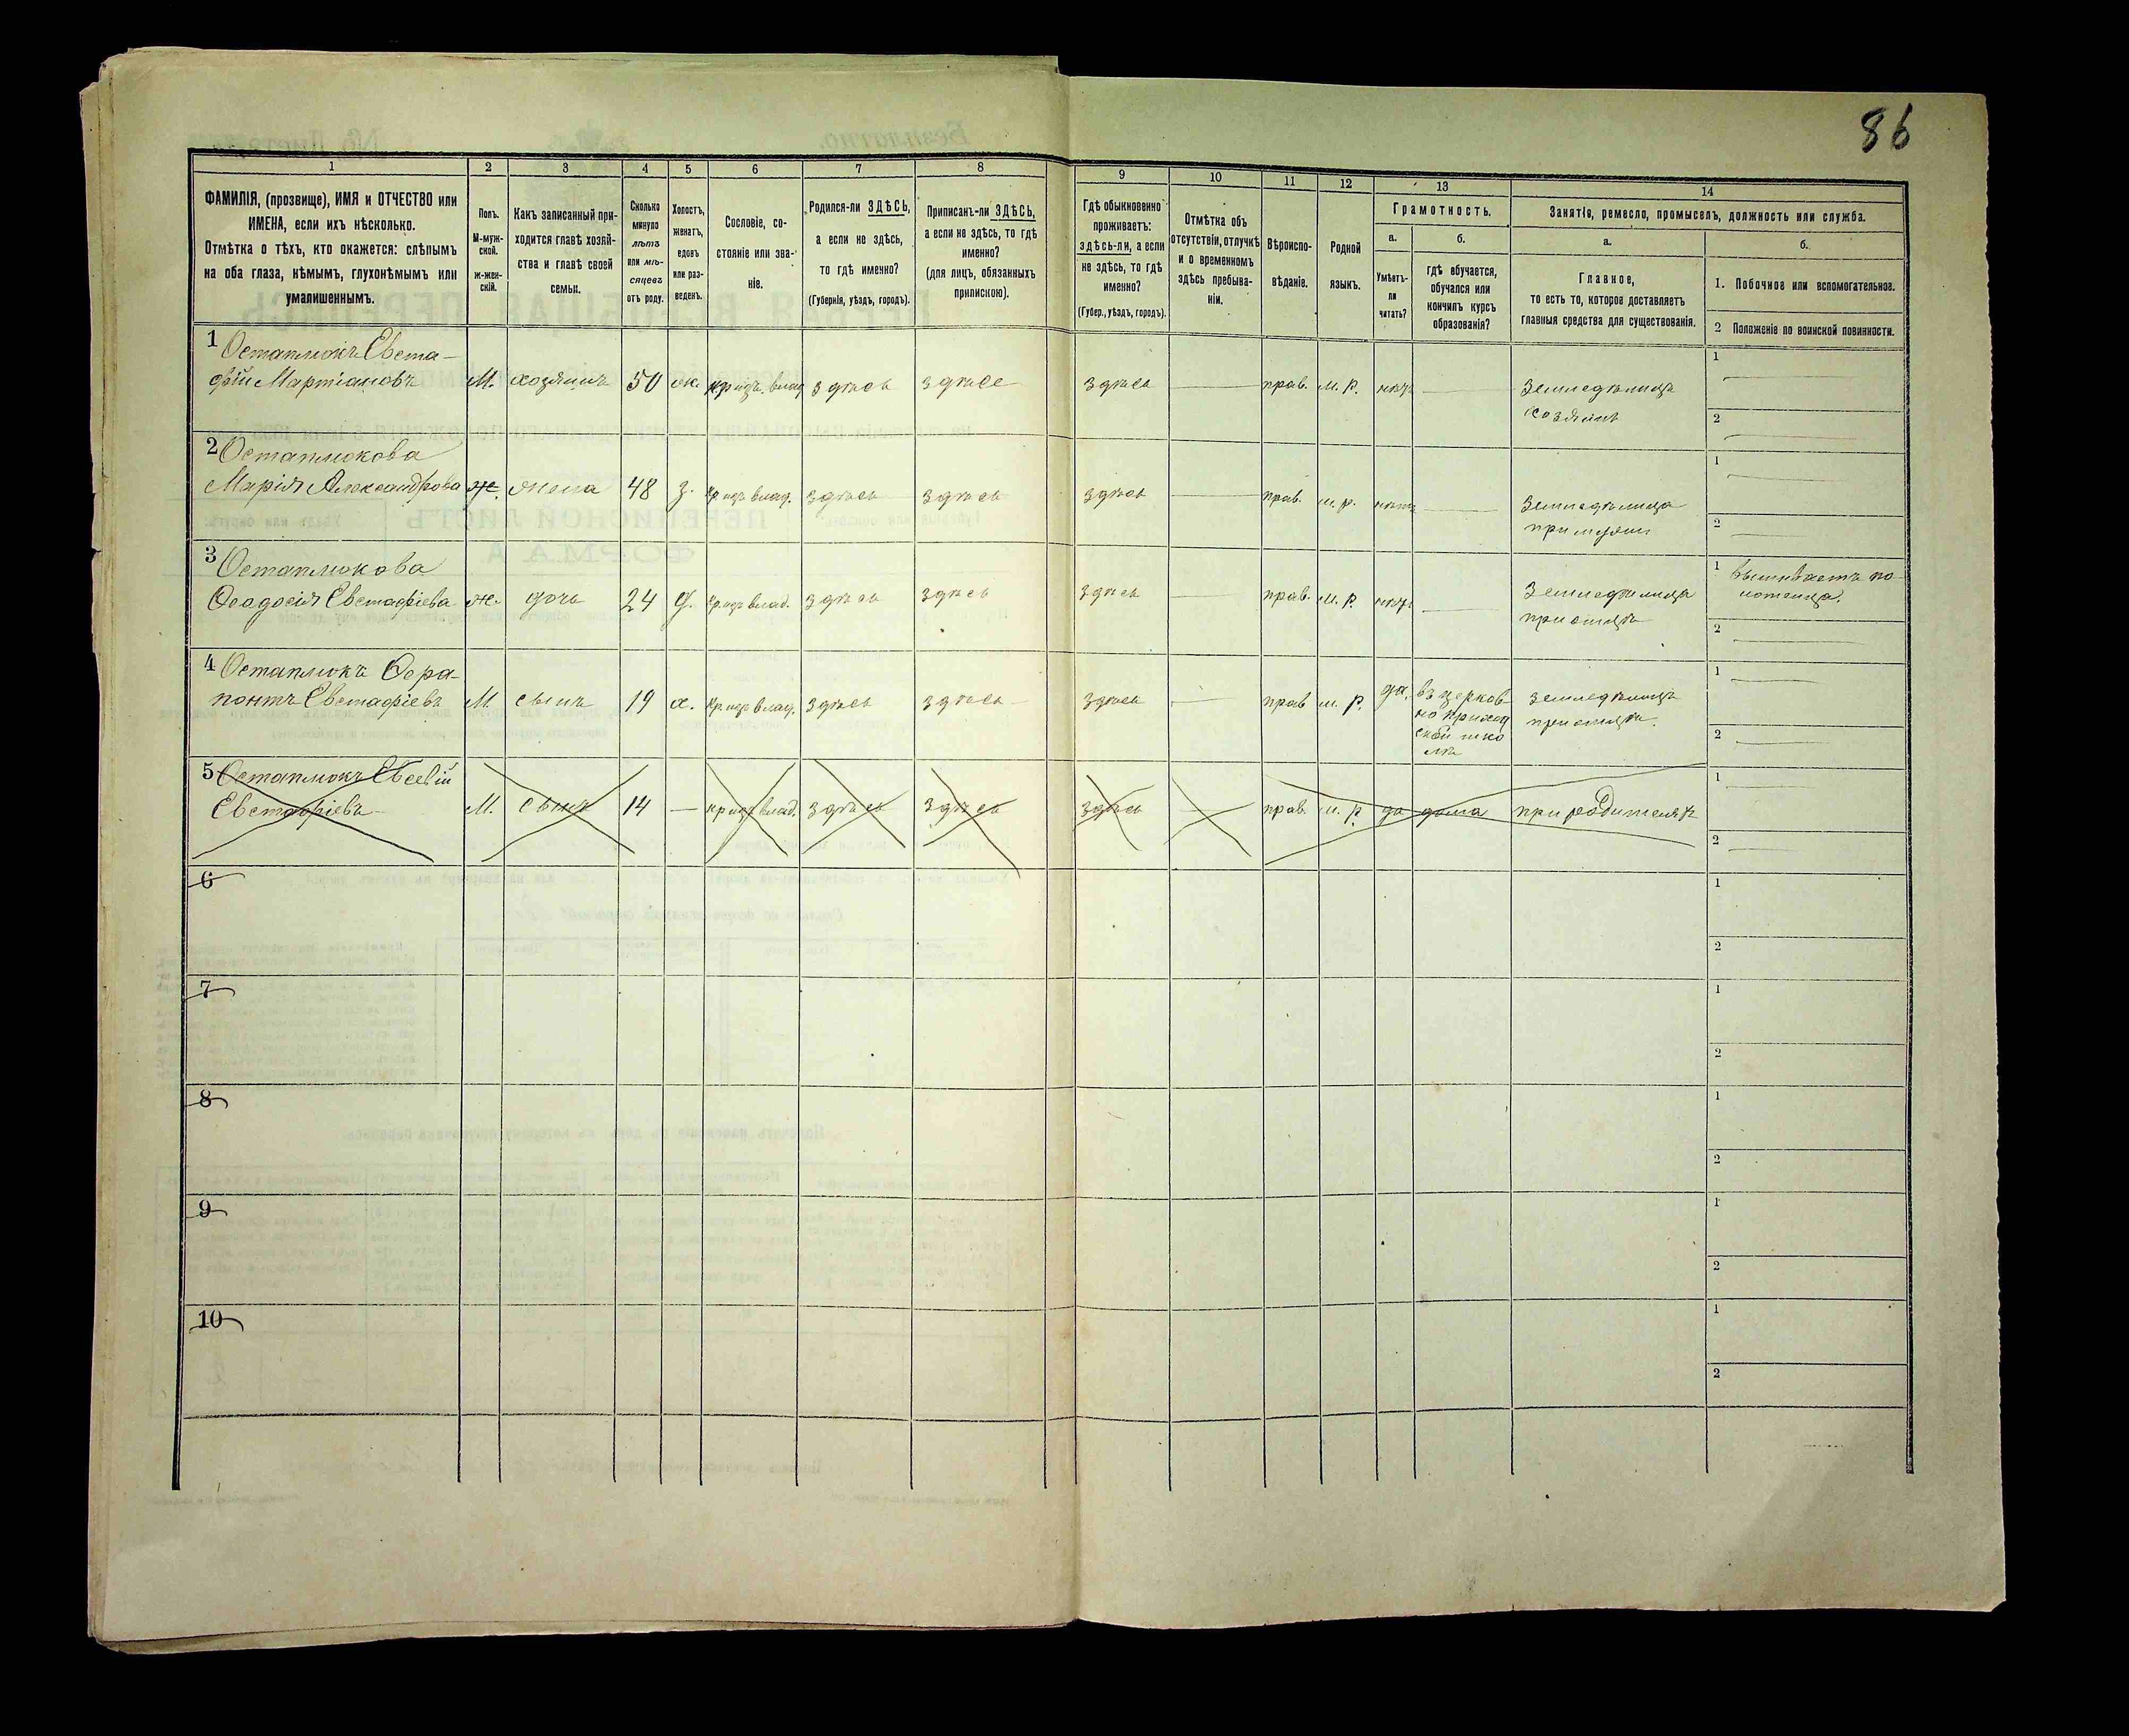 86
1
2
3
4
5
6
7
8
9
10
11
12
13
14
ФАМИЛІЯ, (прозвище), ИМЯ и ОТЧЕСТВО или
ИМЕНА, если ихъ нѣсколько.
Отмѣтка о тѣхъ, кто окажется: слѣпымъ
на оба глаза, нѣмымъ, глухонѣмымъ или
умалишеннымъ.
Полъ.
М-муж-
ской.
ж-жен-
скій.
Какъ записанный при-
ходится главѣ хозяй-
ства и главѣ своей
семьи.
Сколько
минуло
лѣтъ
или мѣ-
сяцевъ
отъ роду.
Холостъ,
женатъ,
вдовъ
или раз-
веденъ.
Сословіе, со-
стояніе или зва-
ніе.
Родился-ли ЗДѢСЬ,
а если не здѣсь,
то гдѣ именно?
(Губернія, уѣздъ, городъ).
Приписанъ-ли ЗДѢСЬ,
а если не здѣсь, то гдѣ
именно?
(для лицъ, обязанныхъ
припискою).
Гдѣ обыкновенно
проживаетъ:
здѣсь-ли, а если
не здѣсь, то гдѣ
именно?
(Губер., уѣздъ, городъ).
Отмѣтка объ
отсутствіи, отлучкѣ
и о временномъ
здѣсь пребыва-
ніи.
Вѣроиспо-
вѣданіе.
Родной
языкъ.
Грамотность.
а.
Умѣетъ-
ли
читать?
б.
гдѣ обучается,
обучался или
кончилъ курсъ
образованія?
Занятіе, ремесло, промыселъ, должность или служба.
а.
Главное,
то есть то, которое доставляетъ
главныя средства для существованія.
б.
1. Побочное или вспомогательное.
2 Положеніе по воинской повинности.
1 Остаплюкъ Евста-
фій Мартіановъ М. хозяинъ 50 ж. кр. изъ влад здѣсь здѣсь здѣсь — прав. м. р. нѣтъ — Земледѣлецъ
хозяинъ
1
2
2 Остаплюкова
Марія Александрова ж. жена 48 з. кр изъ влад. здѣсь здѣсь здѣсь — прав. м. р. нѣтъ — Земледѣлица
при мужѣ
1
2
3 Остаплюкова
Ѳеодосія Евстафіева ж. дочь 24 д. кр изъ влад. здѣсь здѣсь здѣсь — прав. м. р. нѣтъ — Земледѣлица
при отцѣ
1 Вышиваетъ по-
лотенца.
2
4 Остаплюкъ Ѳера-
понтъ Евстафіевъ М. сынъ 19 х. кр изъ влад. здѣсь здѣсь здѣсь — прав м. р. да. въ церков
но приход
ской шко
лѣ
земледѣлецъ
при отцѣ.
1
2
5 Остаплюкъ Евсевій
Евстафіевъ М. сынъ 14 — кр изъ влад. здѣсь здѣсь здѣсь — прав. м. р. да дома при родителяхъ
1
2
6
1
2
7
1
2
8
1
2
9
1
2
10
1
2